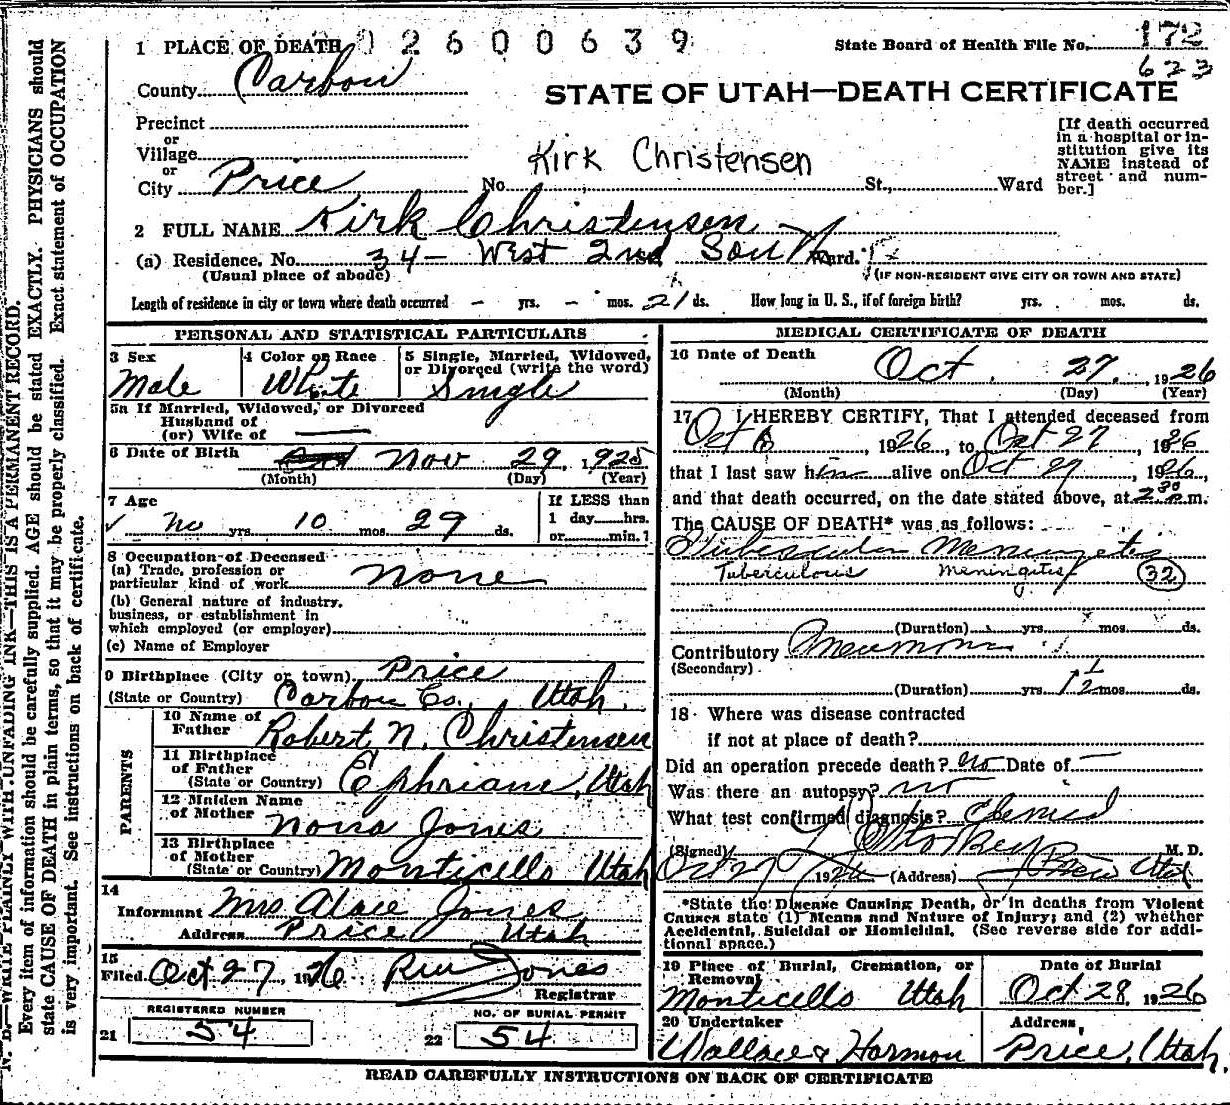 1 PLACE OF DEATH 02600639
State Board of Health File No. 172
623
County Carbon
STATE OF UTAH—DEATH CERTIFICATE
Precinct
or
Village
or
City Price No. St., Ward
Kirk Christensen
[If death occurred
in a hospital or in-
stitution give its
NAME instead of
street and num-
ber.]
2 FULL NAME Kirk Christensen
(a) Residence. No. 34 - West 2nd South Ward.
(Usual place of abode)
(IF NON-RESIDENT GIVE CITY OR TOWN AND STATE)
Length of residence in city or town where death occurred - yrs. - mos. 21 ds. How long in U. S., if of foreign birth? yrs. mos. ds.
PERSONAL AND STATISTICAL PARTICULARS
3 Sex
Male
4 Color or Race
White
5 Single, Married, Widowed,
or Divorced (write the word)
Single
5a If Married, Widowed, or Divorced
Husband of
(or) Wife of
6 Date of Birth Nov 29, 1925
(Month) (Day) (Year)
7 Age
no yrs. 10 mos. 29 ds.
If LESS than
1 day hrs.
or min.]
8 Occupation of Deceased
(a) Trade, profession or
particular kind of work None
(b) General nature of industry,
business, or establishment in
which employed (or employer)
(c) Name of Employer
9 Birthplace (City or town) Price
(State or Country) Carbon Co., Utah.
PARENTS
10 Name of
Father Robert N. Christensen
11 Birthplace
of Father
(State or Country) Ephriam, Utah
12 Maiden Name
of Mother Nora Jones
13 Birthplace
of Mother
(State or Country) Monticello Utah
14
Informant Mrs Alace Jones
Address Price Utah
15
Filed Oct 27, 1926 Jones
Registrar
REGISTERED NUMBER
21 54
NO. OF BURIAL PERMIT
22 54
MEDICAL CERTIFICATE OF DEATH
16 Date of Death Oct. 27, 1926
(Month) (Day) (Year)
17 I HEREBY CERTIFY, That I attended deceased from
Oct 6, 1926, to Oct 27 1926
that I last saw him alive on Oct 27, 1926,
and that death occurred, on the date stated above, at 2 30 m.
The CAUSE OF DEATH* was as follows:
Tubercular Meningetis
Tuberculous Meningitis 32
(Duration) yrs mos. ds.
Contributory Pneumonia
(Secondary)
(Duration) yrs. 1 1/2 mos ds.
18 Where was disease contracted
if not at place of death?
Did an operation precede death? no Date of —
Was there an autopsy? no
What test confirmed diagnosis? Clinical
(Signed) M. D.
Oct 27, 1926 (Address) Price Utah
*State the Disease Causing Death, or in deaths from Violent
Causes state (1) Means and Nature of Injury; and (2) whether
Accidental, Suicidal or Homicidal. (See reverse side for addi-
tional space.)
19 Place of Burial, Cremation, or
Removal
Monticello Utah
Date of Burial
Oct 28, 1926
20 Undertaker
Wallace & Harmon
Address,
Price, Utah.
READ CAREFULLY INSTRUCTIONS ON BACK OF CERTIFICATE
N. B.—WRITE PLAINLY WITH UNFADING INK—THIS IS A PERMANENT RECORD.
Every item of information should be carefully supplied. AGE should be stated EXACTLY. PHYSICIANS should
state CAUSE OF DEATH in plain terms, so that it may be properly classified. Exact statement of OCCUPATION
is very important. See instructions on back of certificate.